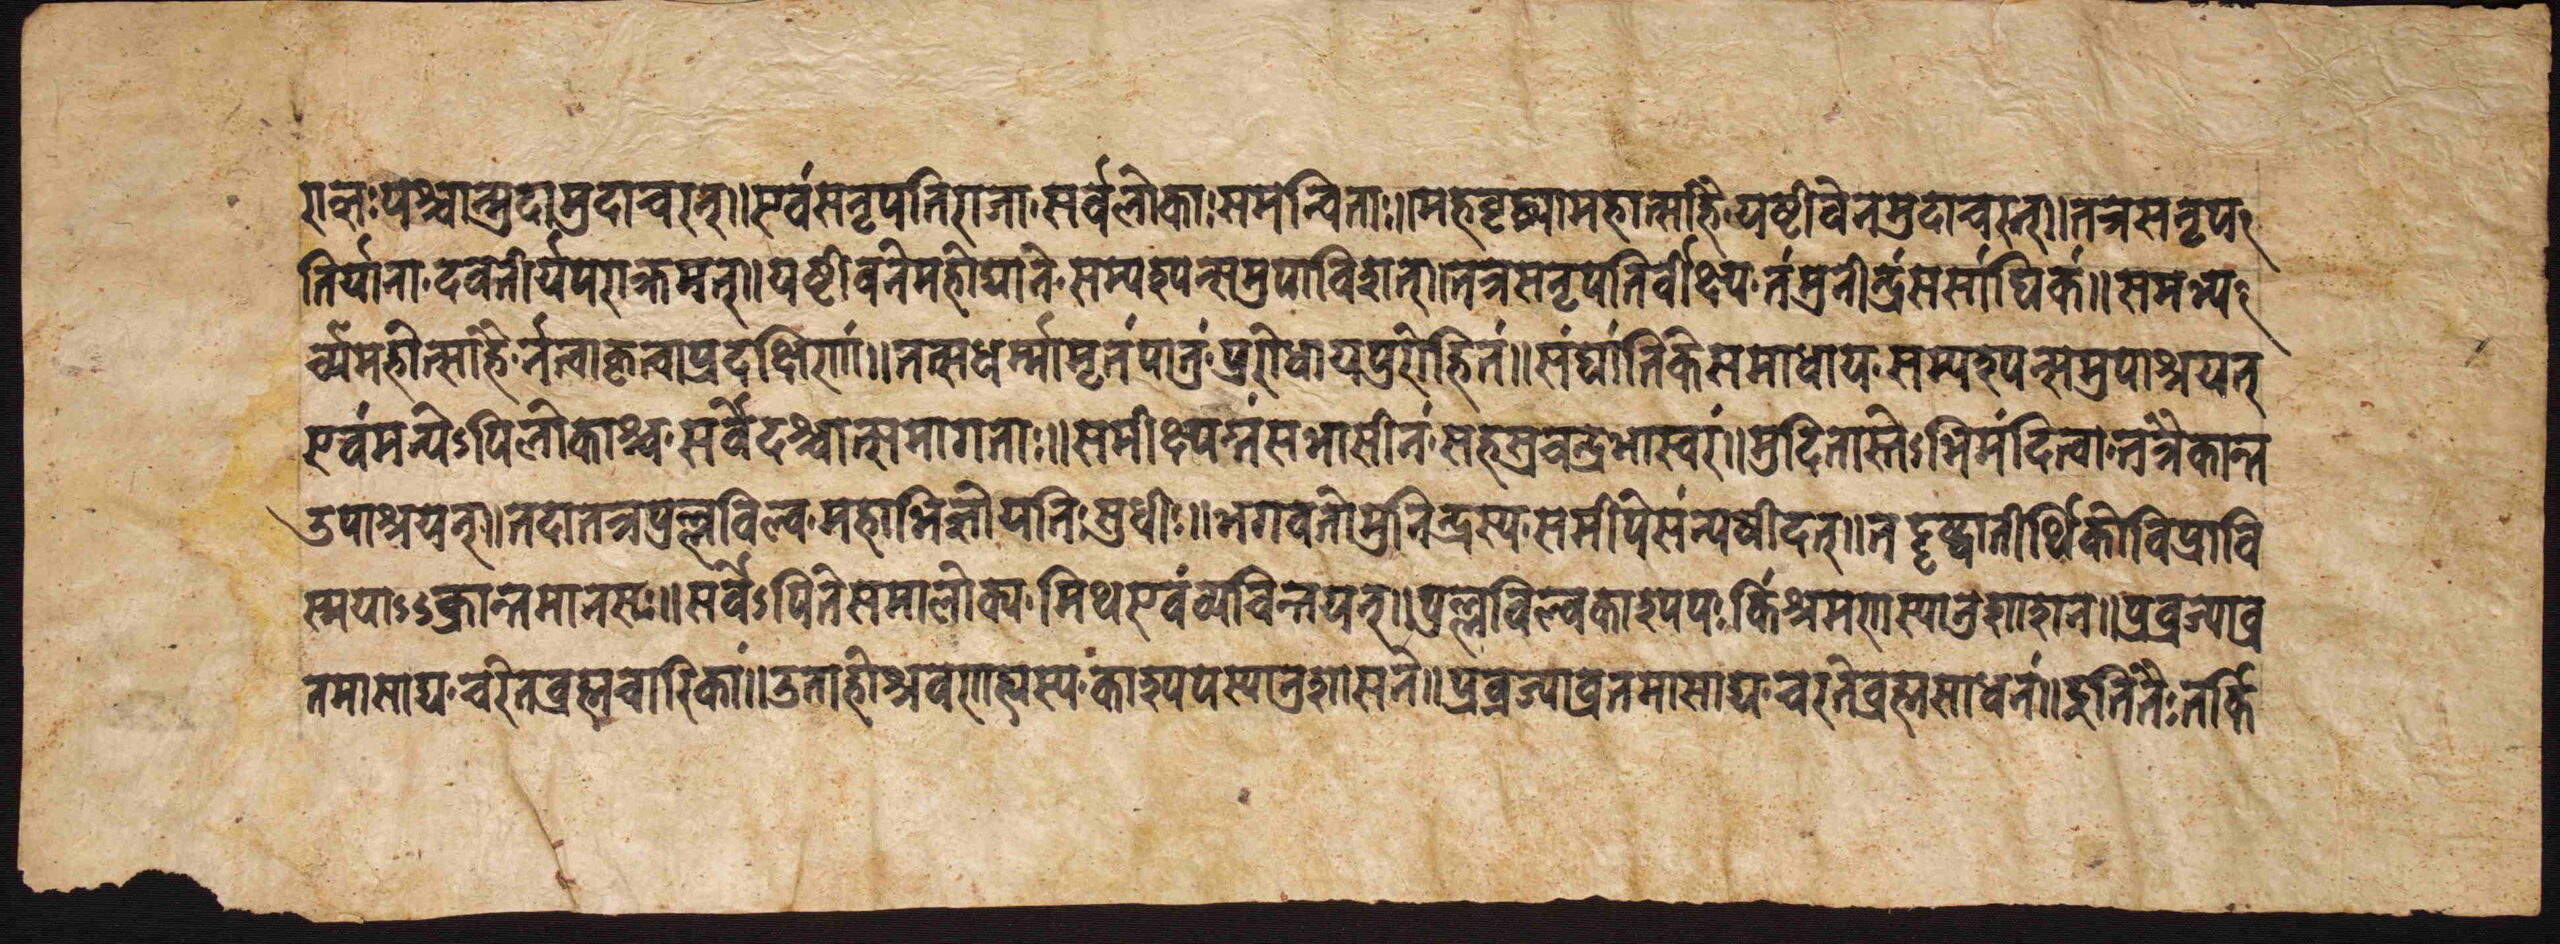 रान्तः पश्चान्मुदा मुदाचरन्॥ एवं स नृपतिराजा सर्वलोकाः समन्विताः॥ महदृद्ध्या महोत्साहै यष्टीवनमुदाचरन्॥ तत्र स नृप
तिर्याना दवतीर्य पराक्रमन्॥ यष्टीवने महोद्याने सम्पश्यन्समुपाविशत्॥ तत्र स नृपतिर्वीक्ष्य तं मुनीन्द्रं ससांघिकं॥ समभ्य
र्च्य महोत्साहै र्नत्वा कृत्वा प्रदक्षिणां॥ तत्सधर्म्मामृतं पातुं पुरोधाय पुरोहितं॥ संघांतिके समाधाय सम्पश्यन्समुपाश्रयत्
एवं मन्येऽपि लोकाश्च सर्वे दश्चात्समागताः॥ समीक्ष्य तं सभासीनं सहस्रचन्द्रभास्वरं॥ मुदितास्तेऽभिमंदित्वा तत्रैकान्त
उपाश्रयन्॥ तदा तत्र पुरुल्वविल्व महाभिज्ञो यतिः सुधीः॥ भगवतो मुनिन्द्रस्य समीपे संन्यषीदत्॥ तद्दृष्ट्वा तीर्थिको विप्रा वि
स्मयाऽऽक्रान्तमानसाः॥ सर्वेऽपि ते समालोक्य मिथ एवं व्यचिन्तयन्॥ पुरुल्वविल्वकाश्यपः किं श्रमणस्यानुशाशन॥ प्रव्रज्याव्र
तमासाद्य चरित ब्रह्मचारिकां॥ उताहो श्रवणाह्यस्य काश्यपस्यानुशासने॥ प्रव्रज्याव्रतमासाद्य चरते ब्रह्मसाधनं॥ इति तैः तर्कि